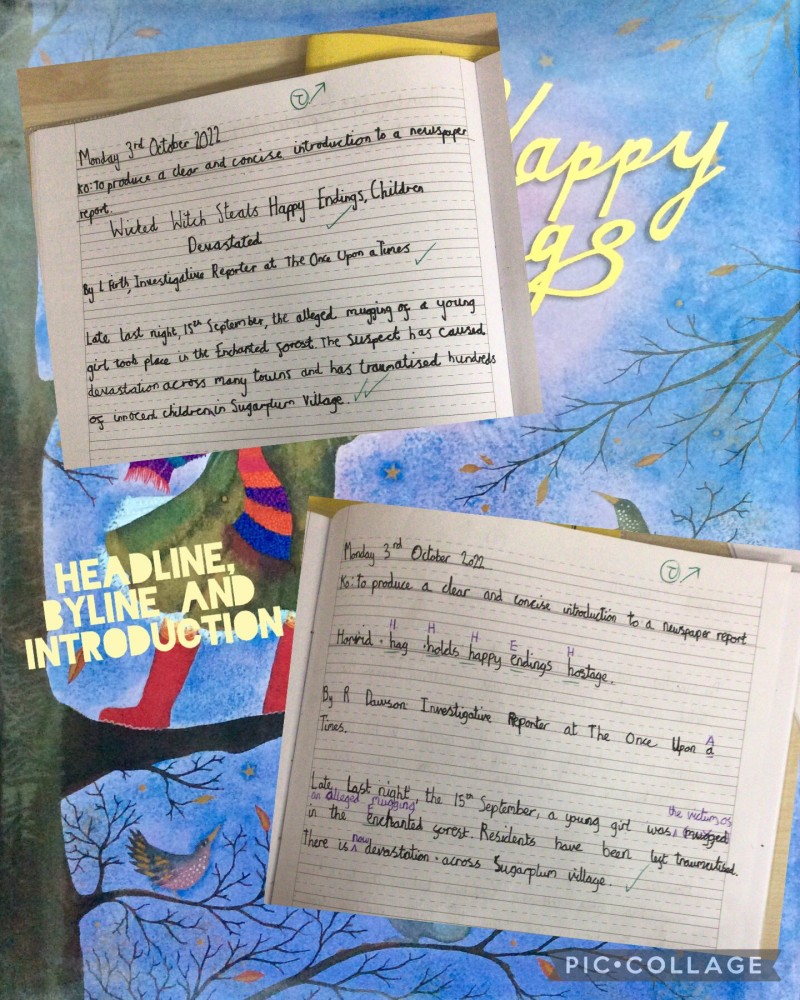 Happy
gs
T
Monday 3rd October 2022
KO: To produce a clear and concise introduction to a newspaper
report.
Wicked Witch Steals Happy Endings, Children
Devastated
By L Firth, Investigative Reporter at The Once Upon a Times
Late last night, 15th September, the alleged mugging of a young
girl took place in the Enchanted Forest. The Suspect has caused
devastation across many towns and has traumatised hundreds
of innocent children, in Sugarplum Village.
HEADLINE,
BYLINE AND
INTRODUCTION
T
Monday 3rd October 2022
KO: to produce a clear and concise introduction to a newspaper report
H H H E H
Horrid hag holds happy endings hostage.
By R Dawson Investigative Reporter at The Once Upon a
A
Times.
Late last night the 15th September, a young girl was mugged
the victim of
an alleged mugging
in the Enchanted forest. Residents have been left traumatised.
There is now devastation across Sugarplum village.
PIC•COLLAGE